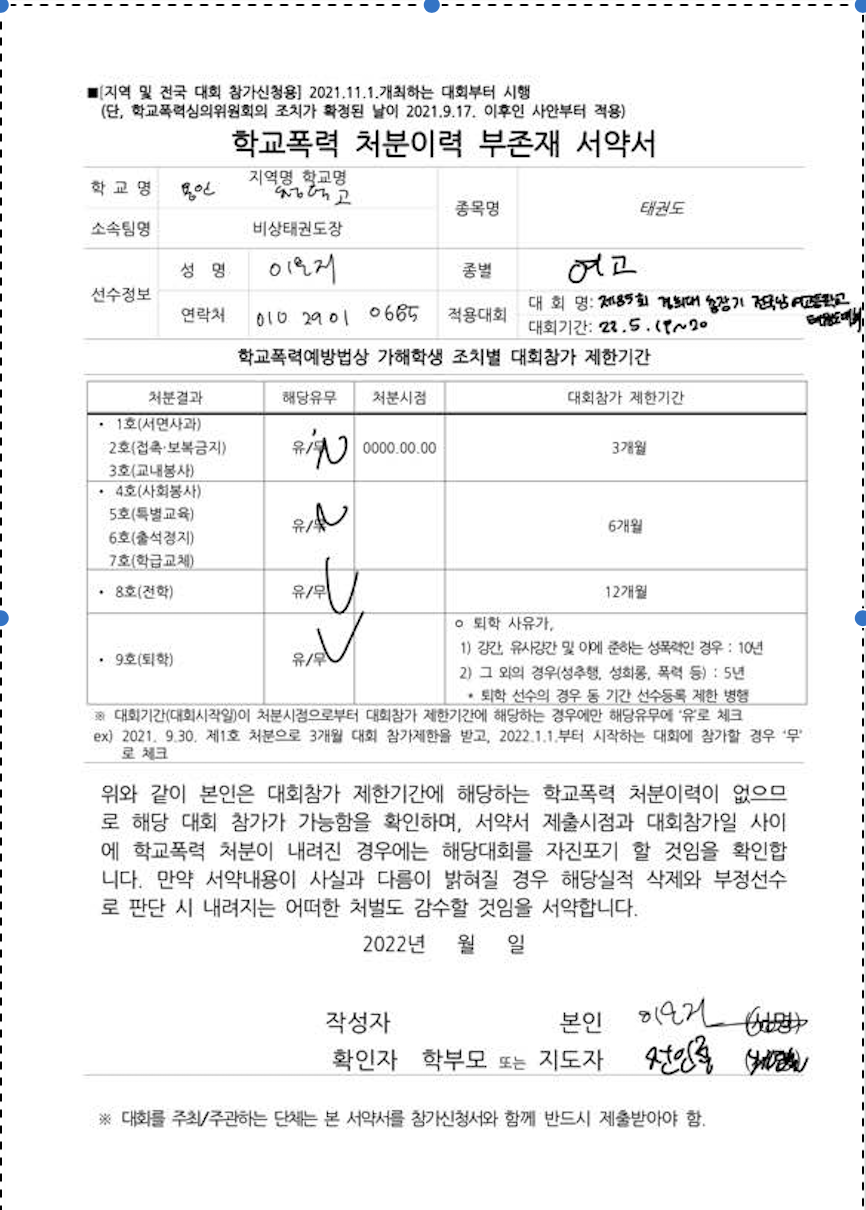 ■[지역 및 전국 대회 참가신청용] 2021.11.1.개최하는 대회부터 시행
(단, 학교폭력심의위원회의 조치가 확정된 날이 2021.9.17. 이후인 사안부터 적용)
학교폭력 처분이력 부존재 서약서
학 교 명 용인 지역명 학교명 고
종목명 태권도
소속팀명 비상태권도장
선수정보
성 명
종별 여고
연락처 010 2901 0685
적용대회
대 회 명: 제85회 경희대 총장기 전국남여고등학교
대회기간: 22.5.19~20
학교폭력예방법상 가해학생 조치별 대회참가 제한기간
처분결과 해당유무 처분시점 대회참가 제한기간
• 1호(서면사과)
2호(접촉·보복금지) 유/무 0000.00.00 3개월
3호(교내봉사)
• 4호(사회봉사)
5호(특별교육)
유/무 6개월
6호(출석정지)
7호(학급교체)
• 8호(전학) 유/무 12개월
• 9호(퇴학) 유/무
ㅇ 퇴학 사유가,
1) 강간, 유사강간 및 이에 준하는 성폭력인 경우 : 10년
2) 그 외의 경우(성추행, 성희롱, 폭력 등) : 5년
* 퇴학 선수의 경우 동 기간 선수등록 제한 병행
※ 대회기간(대회시작일)이 처분시점으로부터 대회참가 제한기간에 해당하는 경우에만 해당유무에 '유'로 체크
ex) 2021. 9.30. 제1호 처분으로 3개월 대회 참가제한을 받고, 2022.1.1.부터 시작하는 대회에 참가할 경우 '무'
로 체크
위와 같이 본인은 대회참가 제한기간에 해당하는 학교폭력 처분이력이 없으므
로 해당 대회 참가가 가능함을 확인하며, 서약서 제출시점과 대회참가일 사이
에 학교폭력 처분이 내려진 경우에는 해당대회를 자진포기 할 것임을 확인합
니다. 만약 서약내용이 사실과 다름이 밝혀질 경우 해당실적 삭제와 부정선수
로 판단 시 내려지는 어떠한 처벌도 감수할 것임을 서약합니다.
2022년 월 일
작성자 본인 (성명)
확인자 학부모 또는 지도자
※ 대회를 주최/주관하는 단체는 본 서약서를 참가신청서와 함께 반드시 제출받아야 함.